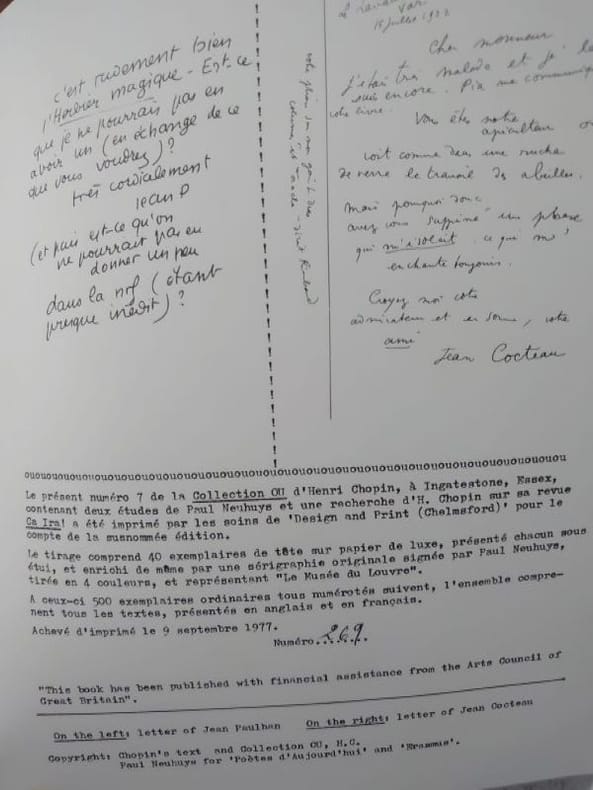 c'est rudement bien
l'Herbier magique - Est-ce
que je ne pourrais pas en
avoir un (en échange de ce
que vous voudrez)?
très cordialement
Jean P
(et puis est-ce qu'on
ne pourrait pas en
donner un peu
dans la nrf (étant
presque inédit)?
Var
Cher monsieur
J'étais très malade et je le
suis encore.
votre livre.
Vous êtes notre
apiculteur
voit comme dans une ruche
de verre le travail des abeilles.
Mais pourquoi donc
avez vous supprimé une phrase
qui m'isolait ce qui m'
enchante toujours.
Croyez moi votre
admirateur et en somme, votre
ami
Jean Cocteau
ouououououououououououououououououououououououououououououououououou
Le présent numéro 7 de la Collection OU d'Henri Chopin, à Ingatestone, Essex,
contenant deux études de Paul Neuhuys et une recherche d'H. Chopin sur sa revue
Ca Ira! a été imprimé par les soins de 'Design and Print (Chelmsford)' pour le
compte de la susnommée édition.
Le tirage comprend 40 exemplaires de tête sur papier de luxe, présenté chacun sous
étui, et enrichi de même par une sérigraphie originale signée par Paul Neuhuys,
tirée en 4 couleurs, et représentant "Le Musée du Louvre".
A ceux-ci 500 exemplaires ordinaires tous numérotés suivent, l'ensemble compre-
nent tous les textes, présentés en anglais et en français.
Achevé d'imprimé le 9 septembre 1977.
Numéro.269.
"This book has been published with financial assistance from the Arts Council of
Great Britain".
On the left: letter of Jean Paulhan On the right: letter of Jean Cocteau
Copyright: Chopin's text and Collection OU, H.C.
Paul Neuhuys for 'Poètes d'Aujourd'hui' and 'Erasmus'.